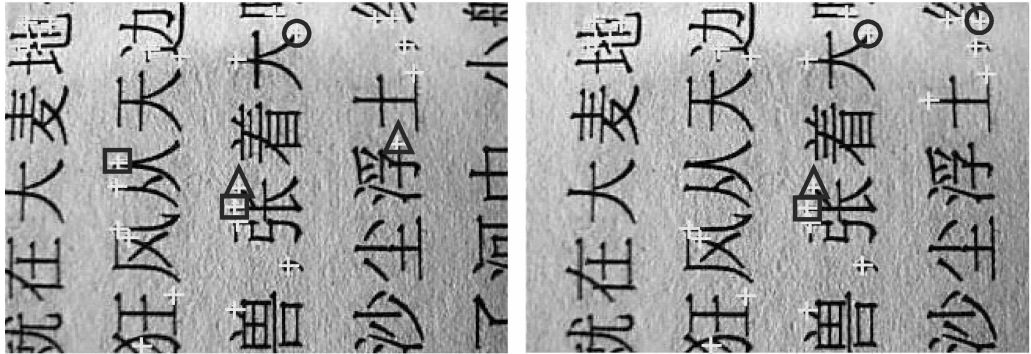 就在大麦地
狂风从天边
张着大
沙尘浮土
了河中小
就在大麦地
狂风从天边
张着大
沙尘浮土